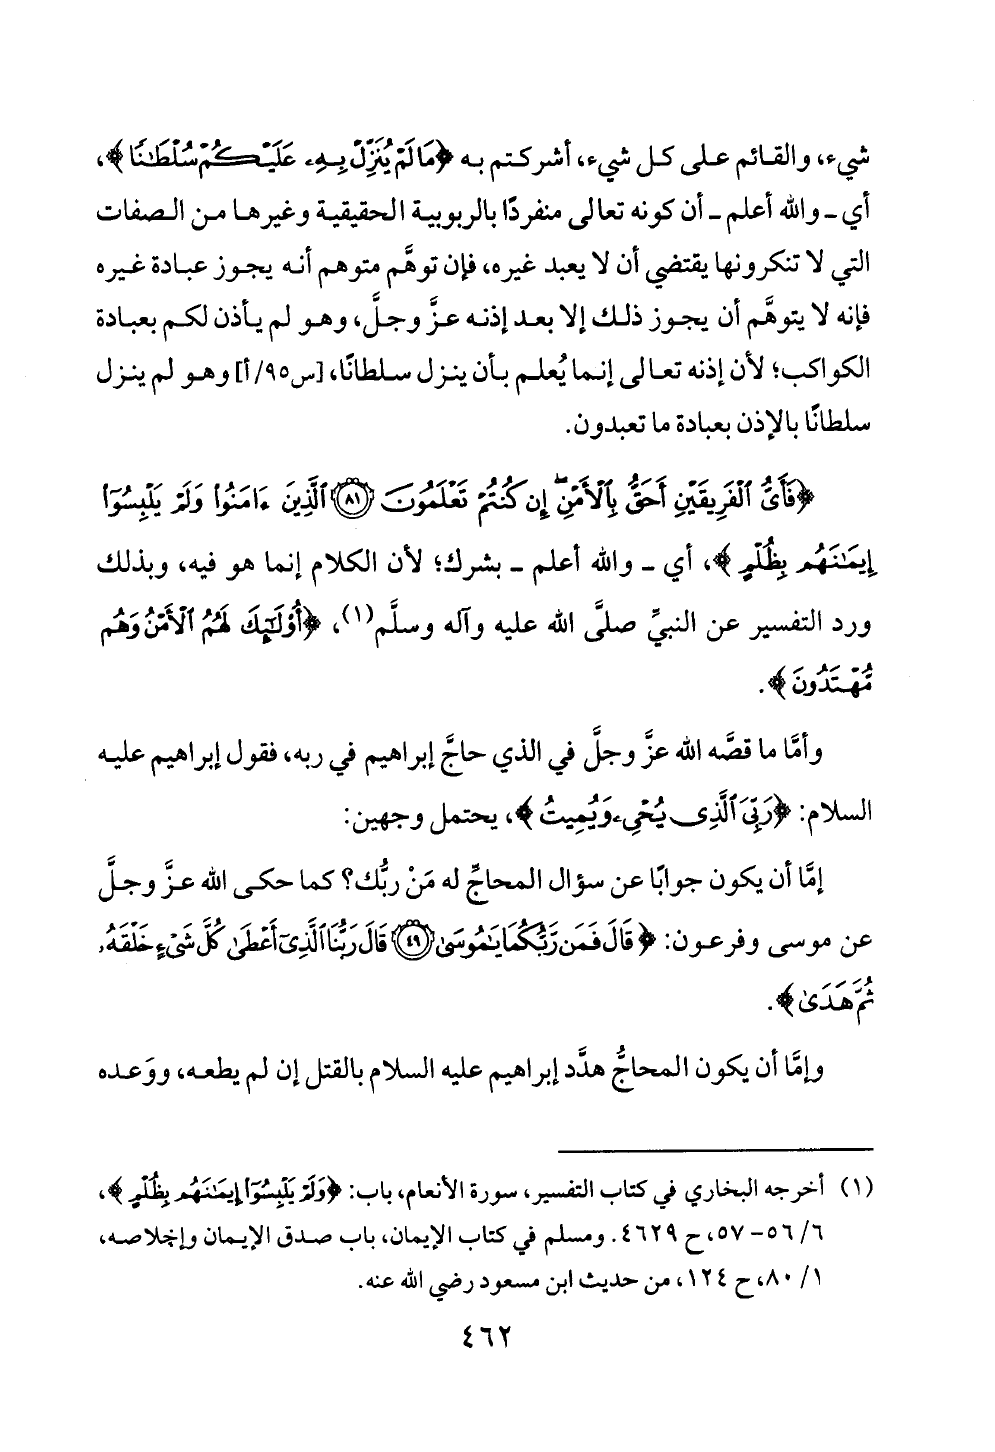 شيء، والقائم على كل شيء، أشركتم به ﴿مَا لَمْ يُنَزِّلْ بِهِۦ عَلَيْكُمْ سُلْطَٰنًا﴾،
أي ـ والله أعلم ـ أن كونه تعالى منفردًا بالربوبية الحقيقية وغيرها من الصفات
التي لا تنكرونها يقتضي أن لا يعبد غيره، فإن توهَّم متوهم أنه يجوز عبادة غيره
فإنه لا يتوهَّم أن يجوز ذلك إلا بعد إذنه عزَّ وجلَّ، وهو لم يأذن لكم بعبادة
الكواكب؛ لأن إذنه تعالى إنما يُعلم بأن ينزل سلطانًا، [س٩٥/أ] وهو لم ينزل
سلطانًا بالإذن بعبادة ما تعبدون.
﴿فَأَىُّ ٱلْفَرِيقَيْنِ أَحَقُّ بِٱلْأَمْنِ ۖ إِن كُنتُمْ تَعْلَمُونَ ۝٨١ ٱلَّذِينَ ءَامَنُوا۟ وَلَمْ يَلْبِسُوٓا۟
إِيمَٰنَهُم بِظُلْمٍ﴾، أي ـ والله أعلم ـ بشرك؛ لأن الكلام إنما هو فيه، وبذلك
ورد التفسير عن النبيِّ صلَّى الله عليه وآله وسلَّم(١)، ﴿أُو۟لَٰٓئِكَ لَهُمُ ٱلْأَمْنُ وَهُم
مُّهْتَدُونَ﴾.
وأمَّا ما قصَّه الله عزَّ وجلَّ في الذي حاجَّ إبراهيم في ربه، فقول إبراهيم عليه
السلام: ﴿رَبِّىَ ٱلَّذِى يُحْىِۦ وَيُمِيتُ﴾، يحتمل وجهين:
إمَّا أن يكون جوابًا عن سؤال المحاجِّ له مَنْ ربُّك؟ كما حكى الله عزَّ وجلَّ
عن موسى وفرعون: ﴿قَالَ فَمَن رَّبُّكُمَا يَٰمُوسَىٰ ۝٤٩ قَالَ رَبُّنَا ٱلَّذِىٓ أَعْطَىٰ كُلَّ شَىْءٍ خَلْقَهُۥ
ثُمَّ هَدَىٰ﴾.
وإمَّا أن يكون المحاجُّ هدَّد إبراهيم عليه السلام بالقتل إن لم يطعه، ووَعده
(١) أخرجه البخاري في كتاب التفسير، سورة الأنعام، باب: ﴿وَلَمْ يَلْبِسُوٓا۟ إِيمَٰنَهُم بِظُلْمٍ﴾،
٦/ ٥٦-٥٧، ح ٤٦٢٩. ومسلم في كتاب الإيمان، باب صدق الإيمان وإخلاصه،
١/ ٨٠، ح ١٢٤، من حديث ابن مسعود رضي الله عنه.
٤٦٢